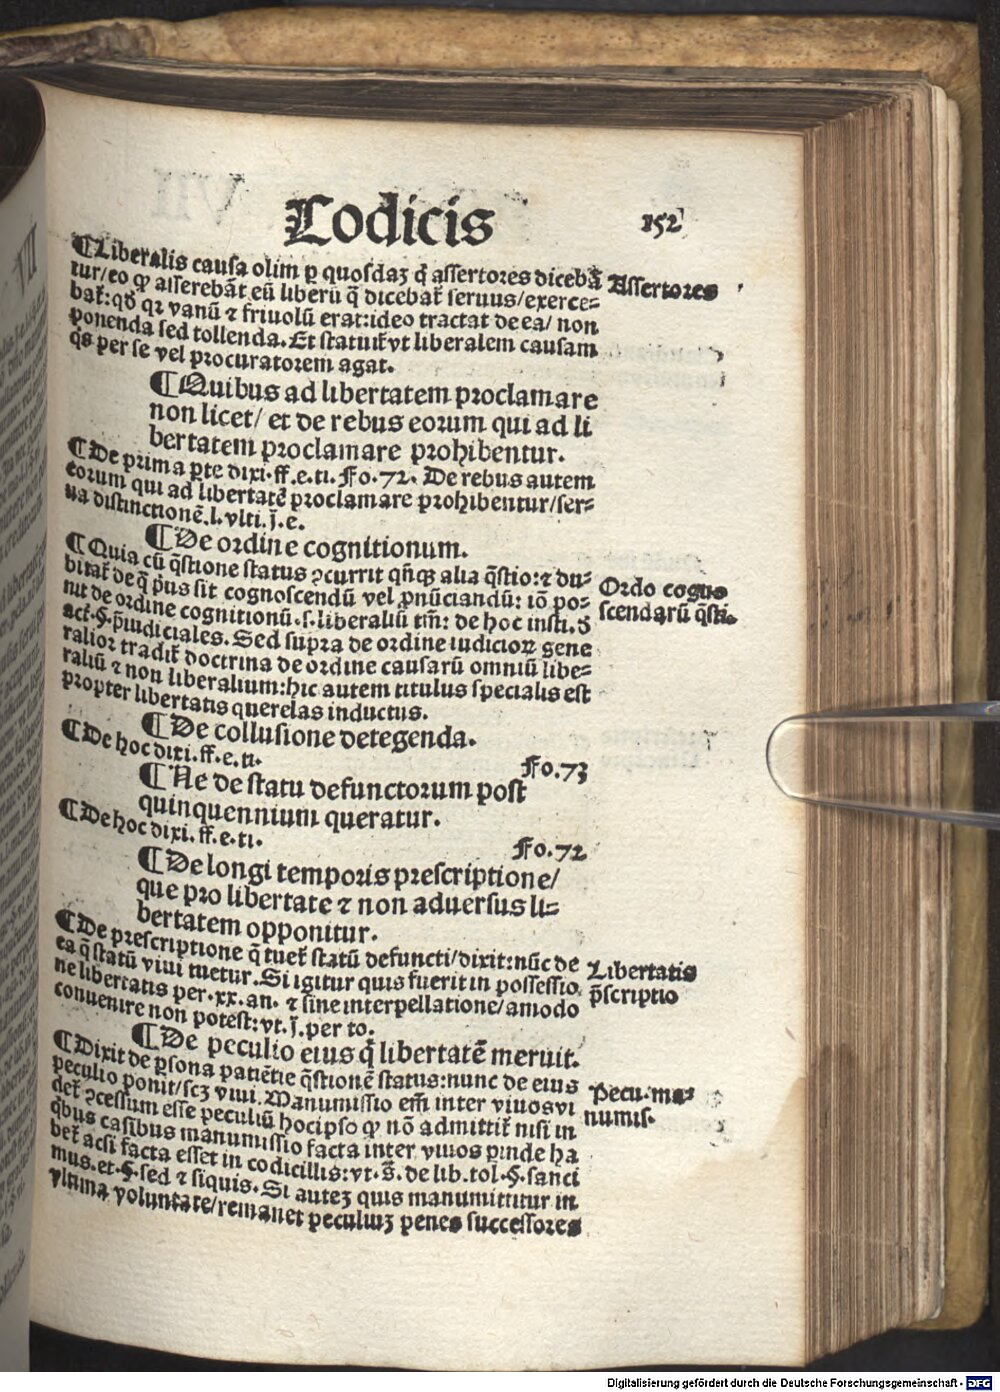 Codicis 152
¶Liberalis causa olim ꝑ quosdaꝫ q̇ assertores dicebā
tur/eo ꝙ asserebāt eū liberū q̄ dicebat̄ seruus/exerce⸗
bat̄:qđ qꝛ vanū ⁊ friuolū erat:ideo tractat de ea/ non
ponenda sed tollenda. Et statuit̄ vt liberalem causam
q̇s per se vel procuratorem agat.
Assertores
¶Quibus ad libertatem proclamare
non licet/ et de rebus eorum qui ad li
bertatem proclamare prohibentur.
¶De prima ꝑte dixi.ff.e.ti. Fo.72. De rebus autem
eorum qui ad libertatē proclamare prohibentur/ser⸗
ua distinctionē.l.vlti.j̄.e.
¶De ordine cognitionum.
¶Quia cū q̄stione status ꝯcurrit qn̄qꝫ alia q̄stio:⁊ du⸗
bitat̄ de q̄ pͥus sit cognoscendū vel ꝓnūciandū: iō po⸗
nit de ordine cognitionū.s.liberaliū tm̄: de hoc insti.ð
act̄.§.p̄iudiciales. Sed supra de ordine iudicioꝝ gene
ralioꝛ tradit̄ doctrina de ordine causarū omniū libe⸗
raliū ⁊ non liberalium:hic autem titulus specialis est
propter libertatis querelas inductus.
Ordo cogno
scendarū q̄sti.
¶De collusione detegenda.
¶De hoc dixi.ff.e.ti. Fo.73
¶Ne de statu defunctorum post
quinquennium queratur.
¶De hoc dixi.ff.e.ti. Fo.72
¶De longi temporis prescriptione/
que pro libertate ⁊ non aduersus li⸗
bertatem opponitur.
¶De prescriptione q̄ tuet̄ statū defuncti/dixit:nūc de
ea q̄ statū viui tuetur. Si igitur quis fuerit in possessio
ne libertatis per.xx.an. ⁊ sine interpellatione/amodo
conuenire non potest:vt.j̄.per to.
Libertatis
p̄scriptio
¶De peculio eius q̇ libertatē meruit.
¶Dixit de ꝑsona patiētie q̄stionē status:nunc de eius
peculio ponit/scꝫ viui. Manumissio em̄ inter viuos vi
det̄ ꝯcessum esse peculiū hocipso ꝙ nō admittit̄ nisi in
q̇bus casibus manumissio facta inter viuos ꝑinde ha
bet̄ acsi facta esset in codicillis:vt.s̄.de lib.tol.§.sanci
mus.et.§.sed ⁊ siquis. Si auteꝫ quis manumittitur in
vltima voluntate/remanet peculiuꝫ penes successores
Pecu.ma⸗
numis.
Digitalisierung gefördert durch die Deutsche Forschungsgemeinschaft - DFG